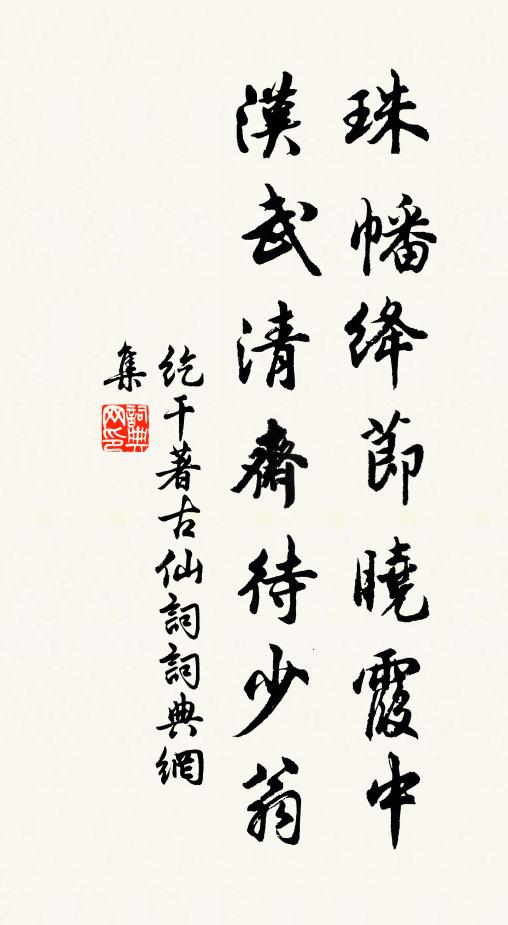 珠幡絳節曉霞中
漢武清齋待少翁
紇干著古仙詞詞典網
集
詞典网印